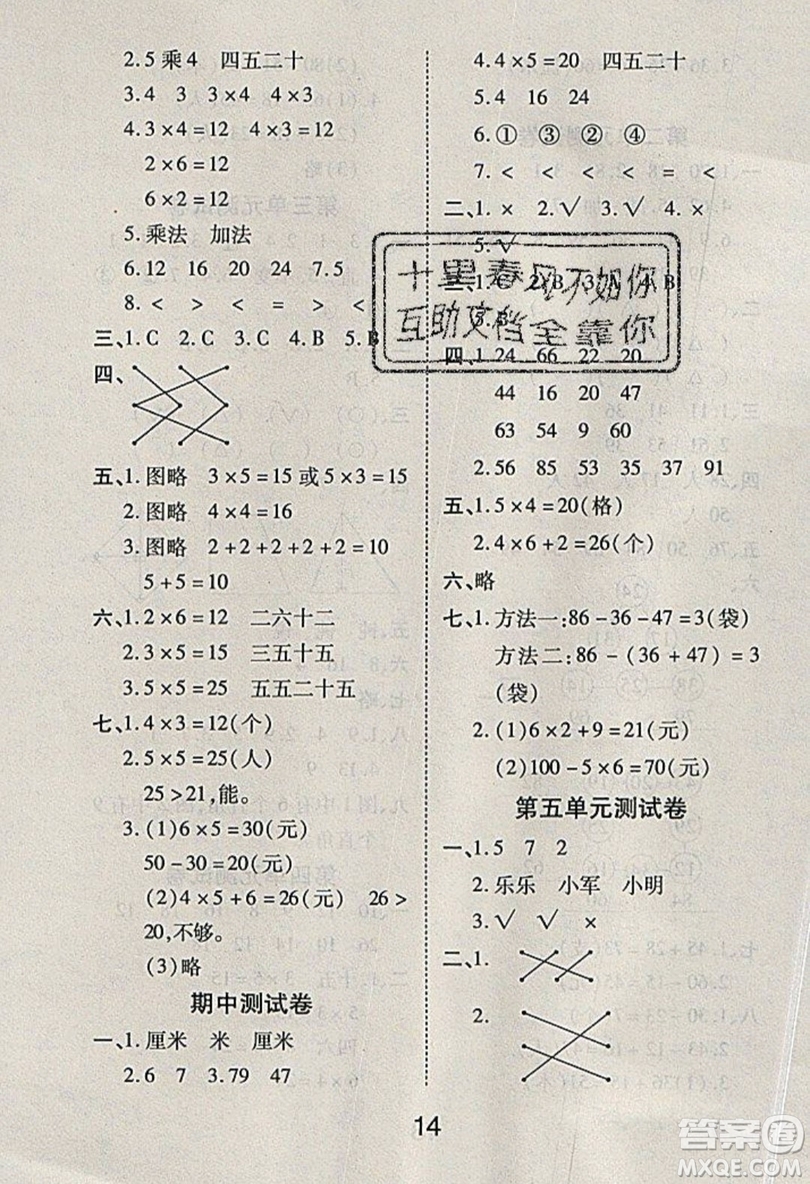 2.5乘4 四五二十
3.4 3 3×4 4×3
4.3×4=12 4×3=12
2×6=12
6×2=12
5.乘法 加法
6.12 16 20 24 7.5
8.< < > = > <
三、1.C 2.C 3.C 4.B 5.B
四、
五、1.图略 3×5=15或5×3=15
2.图略 4×4=16
3.图略 2+2+2+2+2=10
5+5=10
六、1.2×6=12 二六十二
2.3×5=15 三五十五
3.5×5=25 五五二十五
七、1.4×3=12(个)
2.5×5=25(人)
25>21,能。
3.(1)6×5=30(元)
50-30=20(元)
(2)4×5+6=26(元) 26>
20,不够。
(3)略
期中测试卷
一、1.厘米 米 厘米
2.6 7 3.79 47
4.4×5=20 四五二十
5.4 16 24
6.① ③ ② ④
7.< < < = < <
二、1.× 2.√ 3.√ 4.×
5.√
三、1.C 2.B 3.A 4.B
十里春风不如你
互助文档全靠你
四、1.24 66 22 20
44 16 20 47
63 54 9 60
2.56 85 53 35 37 91
五、1.5×4=20(格)
2.4×6+2=26(个)
六、略
七、1.方法一:86-36-47=3(袋)
方法二:86-(36+47)=3
(袋)
2.(1)6×2+9=21(元)
(2)100-5×6=70(元)
第五单元测试卷
一、1.5 7 2
2.乐乐 小军 小明
3.√ √ ×
二、1.
2.
14
答案圈
MXQE.COM